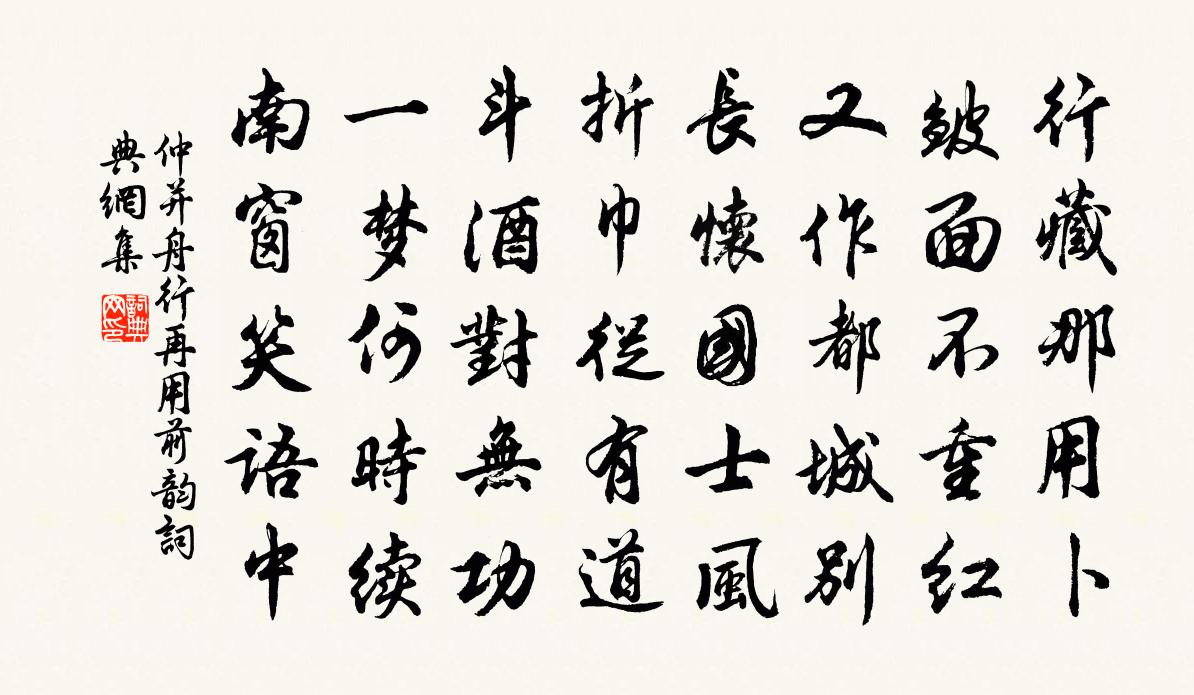 行藏那用卜
皴面不重红
又作都城别
長懷國士風
折巾從有道
斗酒對無功
一梦何時续
南窗笑语中
仲并舟行再用前韵詞
典網集
詞典
网印